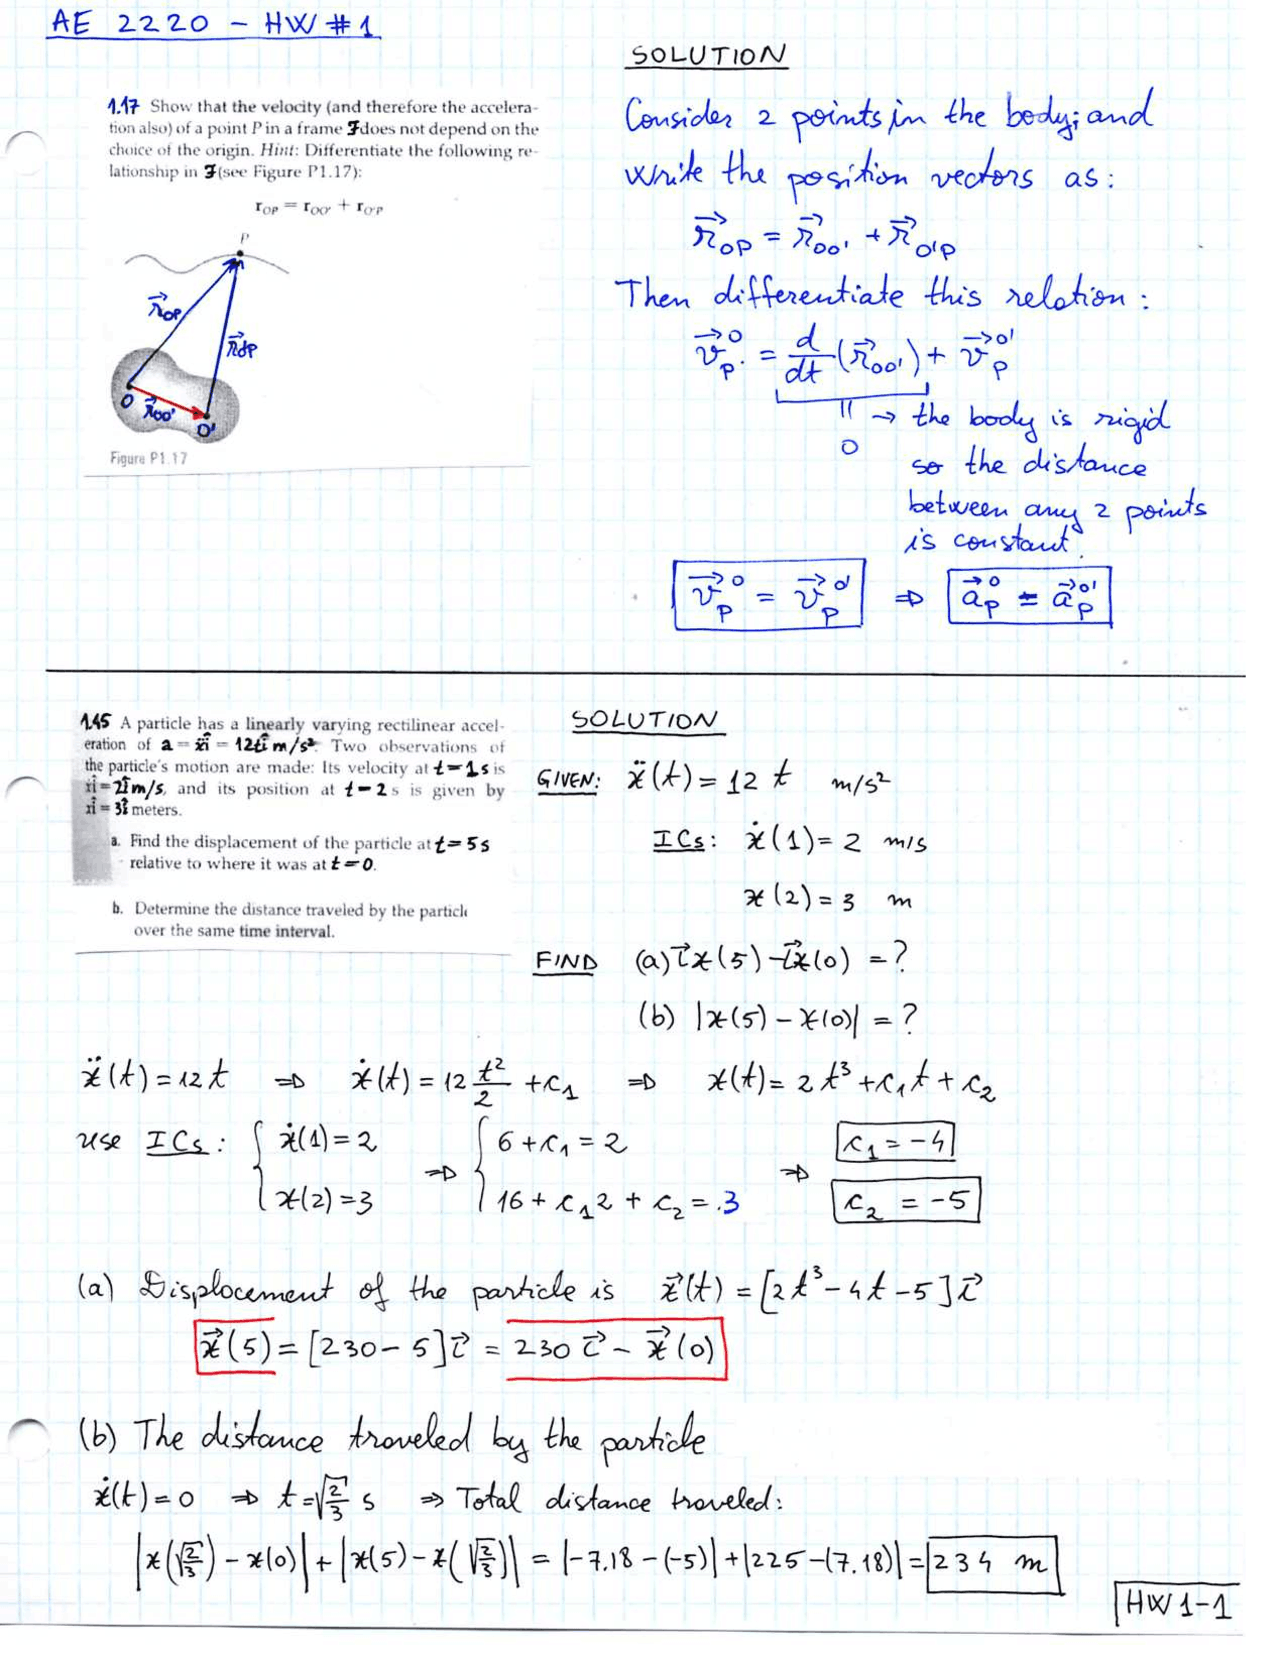 AE 2220 - HW # 1
1.17 Show that the velocity (and therefore the accelera-
tion also) of a point P in a frame ℱ does not depend on the
choice of the origin. Hint: Differentiate the following re-
lationship in ℱ (see Figure P1.17):
r_OP = r_OO' + r_O'P
P
r⃗_OP
r⃗_O'P
O
r⃗_OO'
O'
Figure P1.17
SOLUTION
Consider 2 points in the body; and
write the position vectors as:
r⃗_OP = r⃗_OO' + r⃗_O'P
Then differentiate this relation:
v⃗_P^O = d/dt (r⃗_OO') + v⃗_P^O'
|| → the body is rigid
0
so the distance
between any 2 points
is constant.
v⃗_P^O = v⃗_P^O' ⇒ a⃗_P^O = a⃗_P^O'
1.45 A particle has a linearly varying rectilinear accel-
eration of a = ẍî = 12tî m/s². Two observations of
the particle's motion are made: Its velocity at t = 1 s is
ẋî = 2î m/s, and its position at t = 2 s is given by
xî = 3î meters.
a. Find the displacement of the particle at t = 5 s
relative to where it was at t = 0.
b. Determine the distance traveled by the particle
over the same time interval.
SOLUTION
GIVEN: ẍ(t) = 12 t m/s²
ICs: ẋ(1) = 2 m/s
x(2) = 3 m
FIND (a) i⃗x(5) - i⃗x(0) = ?
(b) |x(5) - x(0)| = ?
ẍ(t) = 12t ⇒ ẋ(t) = 12 t²/2 + c₁ ⇒ x(t) = 2t³ + c₁t + c₂
use ICs: { ẋ(1) = 2 ⇒ { 6 + c₁ = 2 ⇒ c₁ = -4
x(2) = 3 16 + c₁2 + c₂ = .3 c₂ = -5
(a) Displacement of the particle is x⃗(t) = [2t³ - 4t - 5] i⃗
x⃗(5) = [230 - 5] i⃗ = 230 i⃗ - x⃗(0)
(b) The distance traveled by the particle
ẋ(t) = 0 ⇒ t = √(2/3) s ⇒ Total distance traveled:
|x(√(2/3)) - x(0)| + |x(5) - x(√(2/3))| = |-7.18 - (-5)| + |225 - (7.18)| = 234 m
HW 1-1